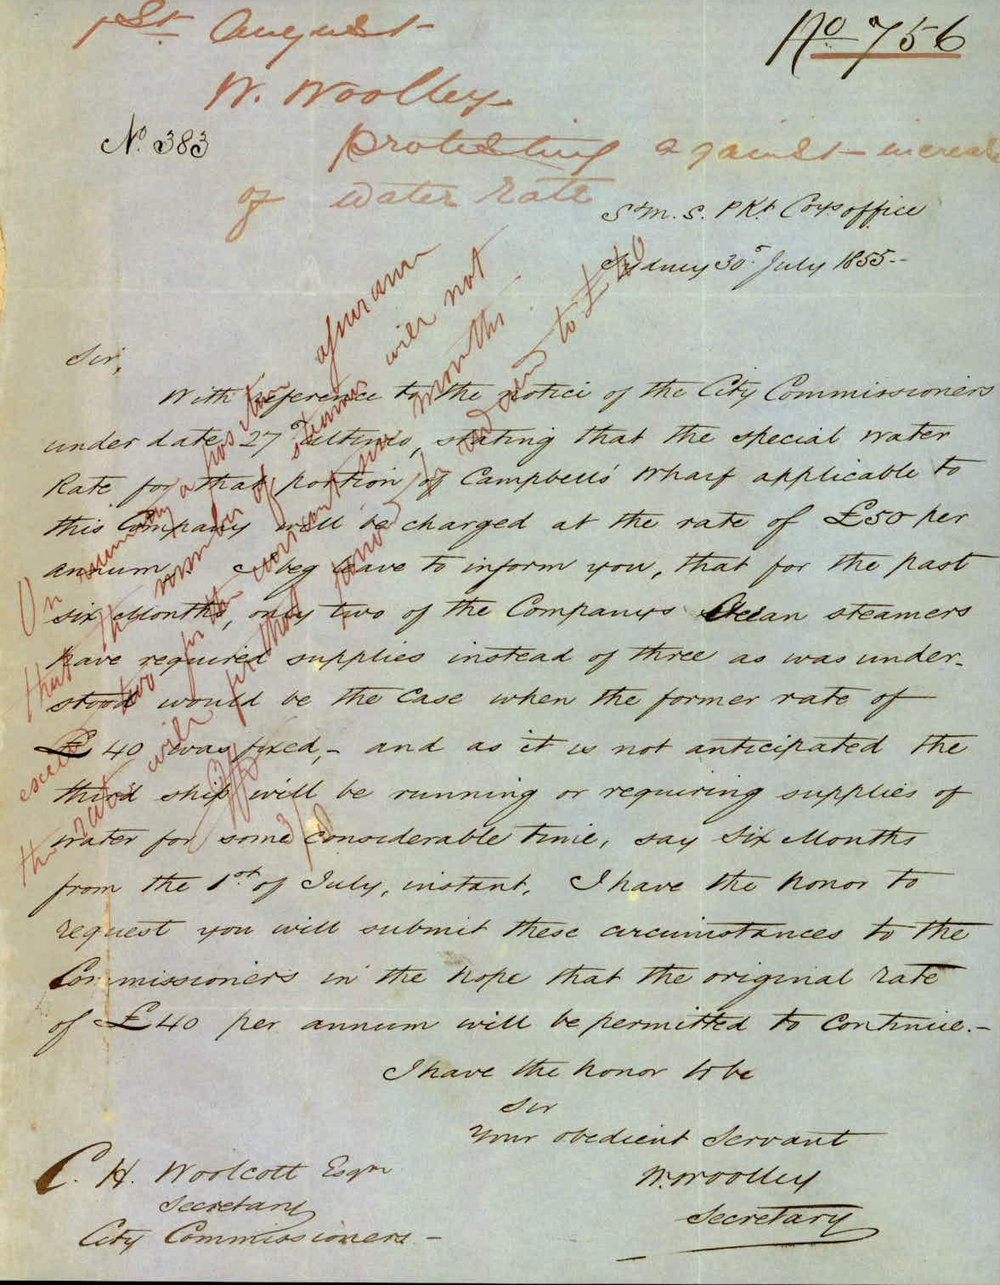 1st August
No 756
W. Woolley
No. 383
protesting against increase
of water rate
S M. S. PKt Coys office
Sydney 30 July 1855-
Sir,
With reference to the notice of the City Commissioners
under date 27 Ultimo, stating that the special water
Rate for that portion of Campbells' Wharf applicable to
this Company will be charged at the rate of £50 per
annum, I beg leave to inform you, that for the past
six Months, only two of the Companys Ocean steamers
have required supplies instead of three as was under-
stood would be the case when the former rate of
£40 was fixed, - and as it is not anticipated the
third ship will be running or requiring supplies of
water for some considerable time, say Six Months
from the 1st of July, instant, I have the honor to
request you will submit these circumstances to the
Commissioners in the hope that the original rate
of £40 per annum will be permitted to continue.-
I have the honor to be
Sir
Your obedient Servant
W. Woolley
Secretary
C. H. Woolcott Esqre
Secretary
City Commissioners. -
On a positive assurance
that the number of steamers will not
exceed two for the current six months
the rate will for that period be reduced to £40